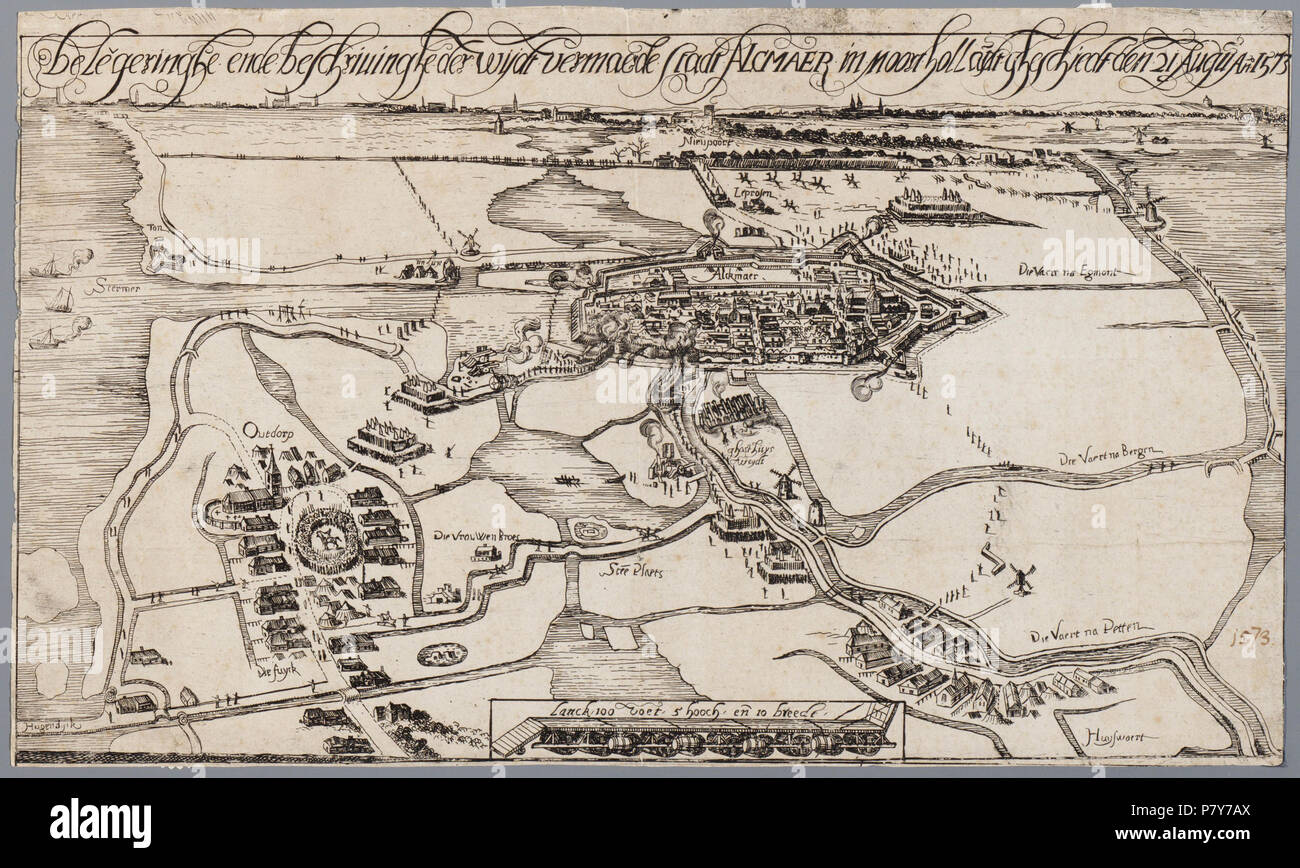 Belegeringhe ende beschrivinghe der wijdt vermaede Stadt ALCMAER in noort hollandt ghschiedt den 21 Augu A° 1573
Nieupoort
Leprosen
Ton
Alckmaer
Die Vaert na Egmont
Stermer
Outdorp
Die Vaert na Bergen
Die Vrouwen Broer
Ste Plaets
Die Vaert na Petten
1573
Die fuyck
Hugendijck
Lanck 100 voet 5 hooch en 10 breede
Huyswaert
alamy stock photo
Image ID: P7Y7AX
www.alamy.com